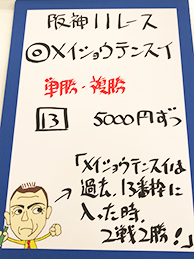 阪神11レース
◎メイショウテンスイ
単勝・複勝
13 5000円ずつ
「メイショウテンスイは
過去、13番枠に
入った時、
2戦2勝!」